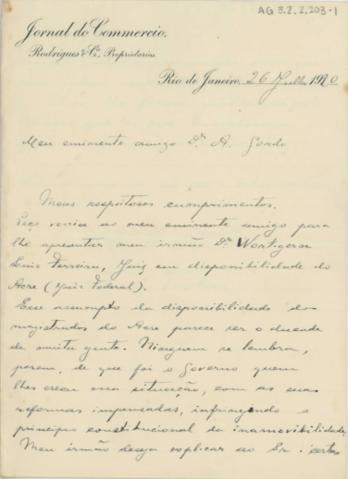 AG 3.2.2.203-1
Jornal do Commercio.
Rodrigues & Cª. Proprietarios
Rio de Janeiro, 26 Julho 1920
Meu eminente amigo Dr. A. Gordo
Meus respeitosos cumprimentos.
Peço venia ao meu eminente amigo para
lhe apresentar meu irmão Dr.
Luiz Ferreira, Juiz em disponibilidade do
Acre (Juiz Federal).
Esse assumpto da disponibilidade dos
magistrados do Acre parece ser o duende
de muita gente. Ninguem se lembra,
porem, de que foi o Governo quem
lhes creou essa situação, com as suas
reformas impensadas, infringindo o
principio constitucional da inamovibilidade.
Meu irmão deseja explicar ao Sr. certos